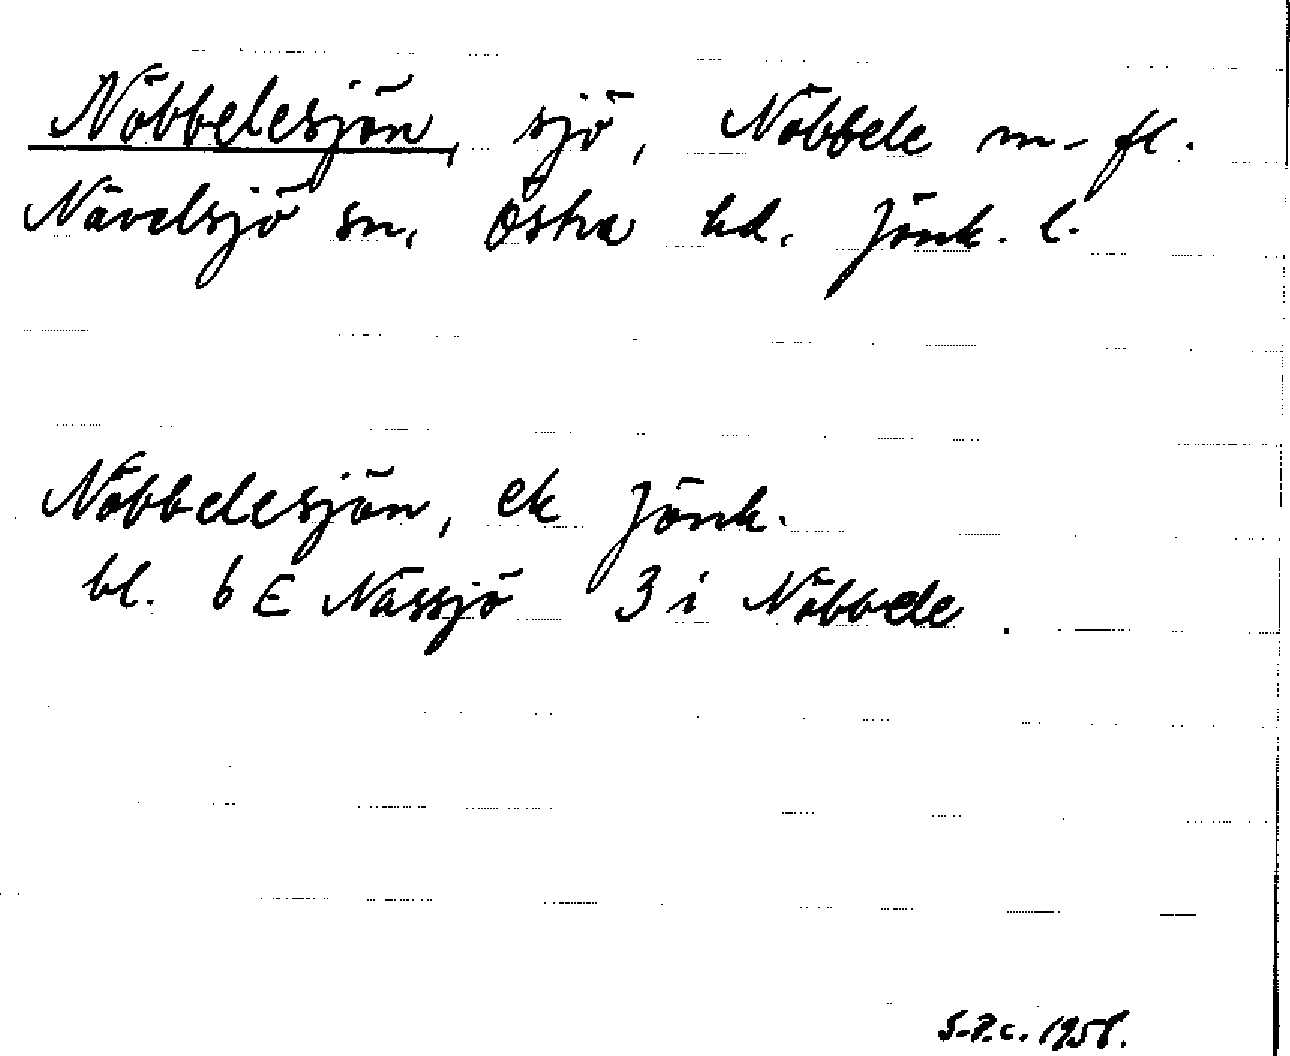 Nöbbelesjön, sjö, Nöbbele m. fl.
Nävelsjö sn. Östra hd. Jönk. l.
Nöbbelesjön, ek Jönk.
bl. 6 E Nässjö 3 i Nöbbele.
1958.